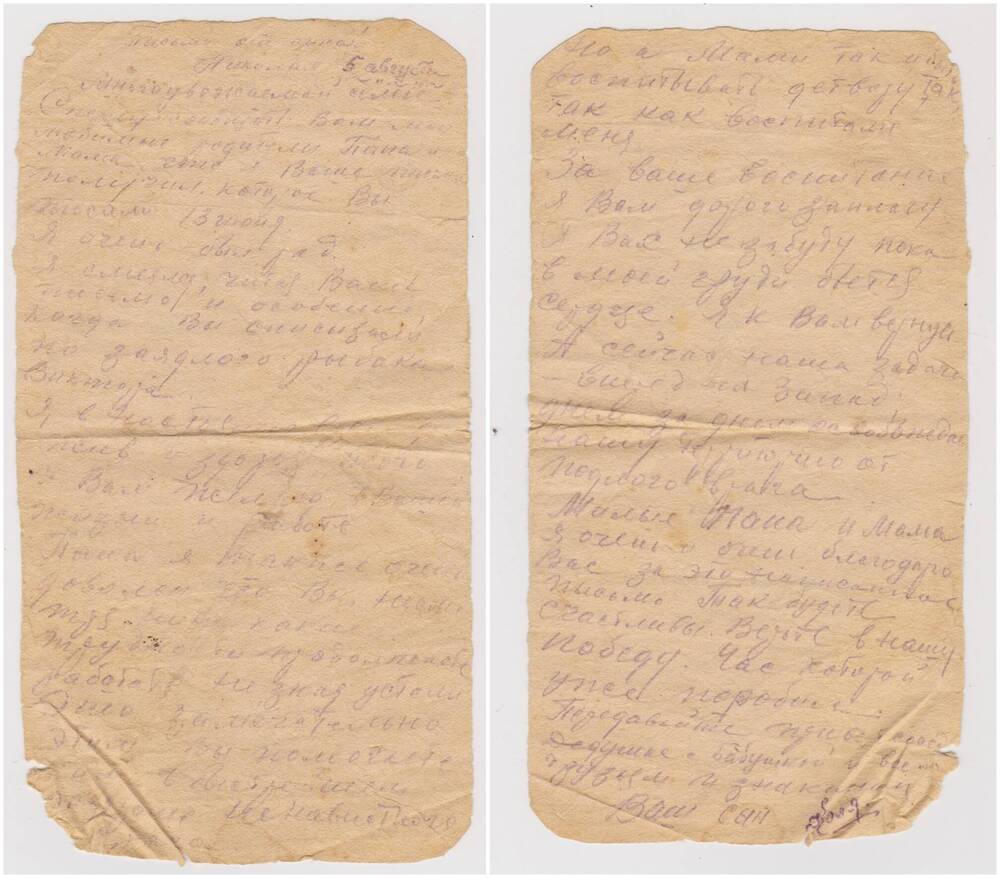 Письмо от сына!
Николая 5 августа
Многоуважаемой семье
Спешу сообщить Вам мои
любимые родители Папа и
Мама, что я Ваше письмо
получил, которое Вы
писали 13 июня
Я очень был рад.
Я смеялся, читая Ваше
письмо, и особенно,
когда Вы описывали
про заядлого рыбака
Виктора.
жив и здоров, чего
и Вам желаю в Вашей
жизни и работе
Папа я также очень
доволен что Вы,
трудности продолжаете
работать не зная устали
Это замечательно
Этим Вы помогаете
ненавистного
Но а Мами так и
воспитывать детвору так
так как воспитали
меня
За ваше воспитание
я Вам дорого заплачу
Я Вас не забуду пока
в моей груди бьется
сердце. Я к Вам вернусь
А сейчас наша задача
– вперед на Запад!
днем за днем освобождать
нашу территорию от
подлого врага
Милые Папа и Мама
я очень и очень благодарю
Вас за это написанное
письмо. Так будьте
счастливы. Верьте в нашу
победу. Час которой
уже пробил.
Передавайте привет
дедушке с бабушкой и всем
друзьям и знакомым
Ваш сын Коля